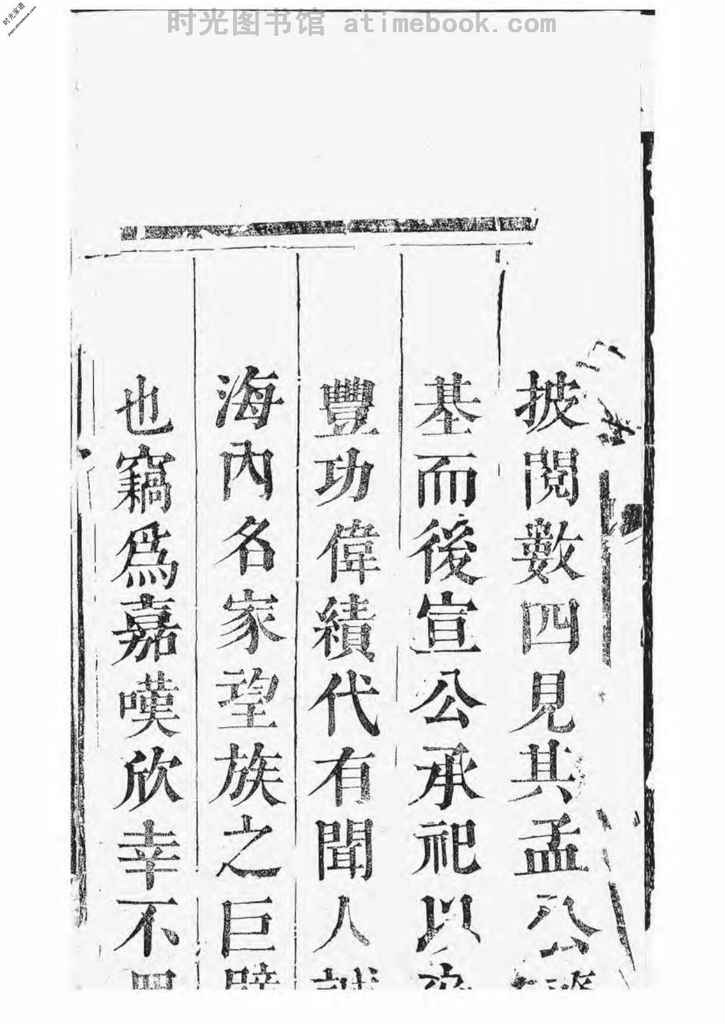 时光图书馆 atimebook.com
披閱數四見其孟公
基而後宣公承祀以來
豐功偉績代有聞人誠
海內名家望族之巨擘
也竊為嘉嘆欣幸不